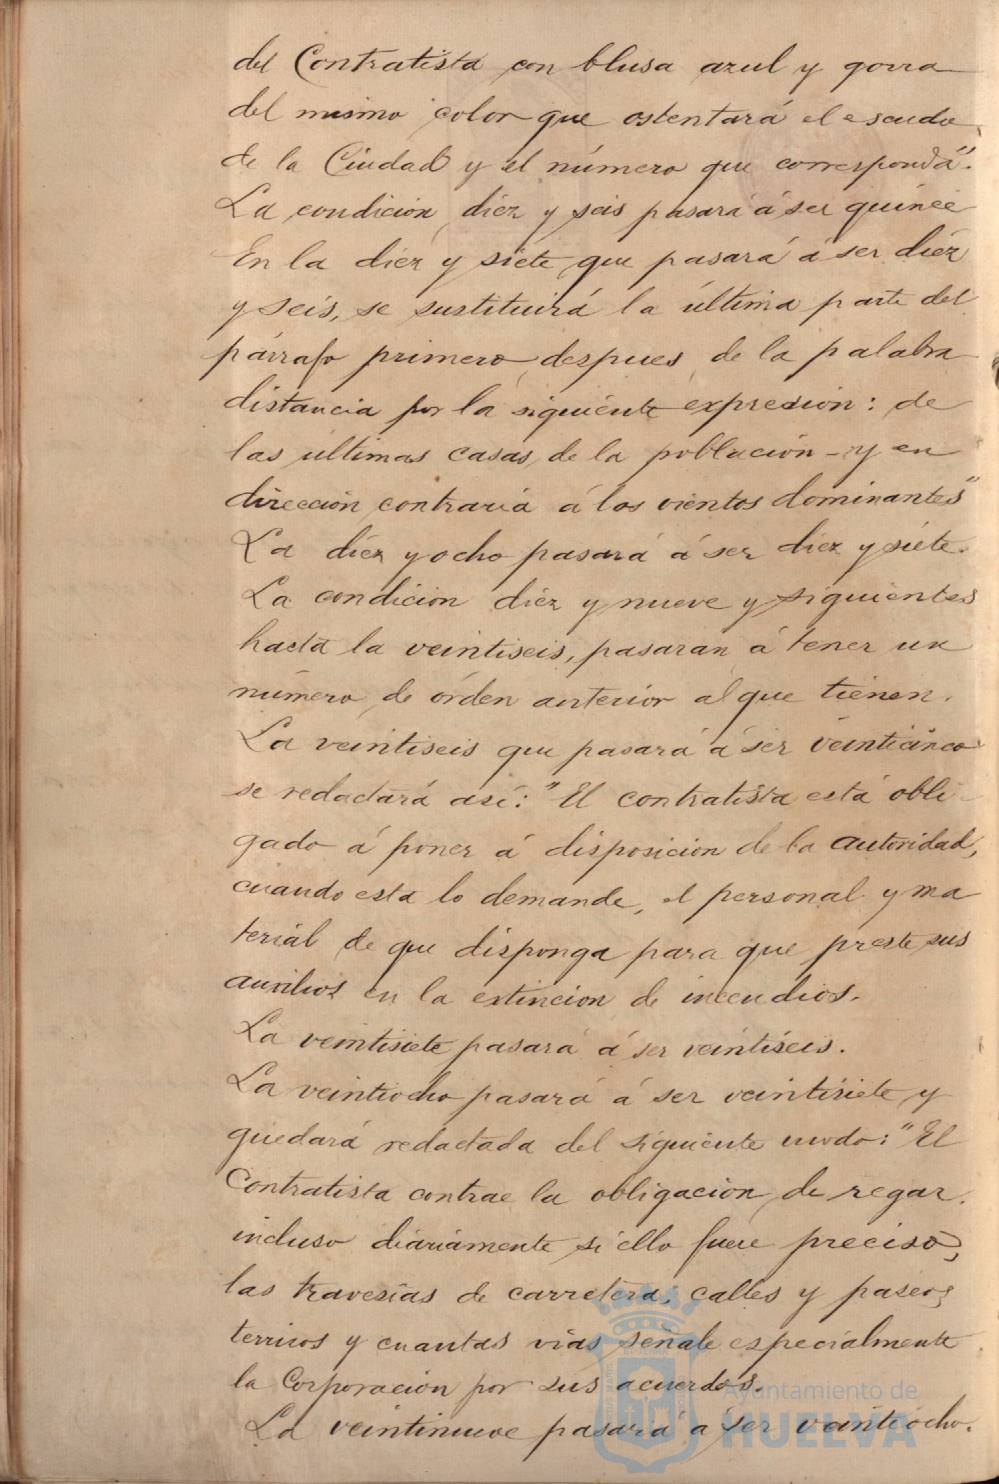 del Contratista con blusa azul y gorra
del mismo color que ostentará el escudo,
de la Ciudad y el número que corresponda".
La condición diéz y seis pasará á ser quince
En la diéz y siete que pasará á ser diéz
y seis, se sustituirá la última parte del
párrafo primero despues de la palabra
distancia por la siguiente expresion: de
las últimas casas de la población - y en
dirección contraria á los vientos dominantes"
La diéz y ocho pasará á ser diez y siete.
La condición diéz y nueve y siguientes
hasta la veintiseis, pasaran á tener un
número de órden anterior al que tienen.
La veintiseis que pasará á ser veinticinco
se redactará así: "El contratista está obli-
gado á poner á disposicion de la autoridad,
cuando esta lo demande, el personal y ma
terial de que disponga para que preste sus
auxilios en la extincion de incendios.
La veintisiete pasará á ser veintiseis.
La veintiocho pasará á ser veintisiete y
quedará redactada del siguiente modo: "El
Contratista contrae la obligación de regar,
incluso diáriamente si ello fuere preciso,
las travesías de carretera, calles y paseos
terrizos y cuantas vías señale especialmente
la Corporación por sus acuerdos.
La veintinueve pasará á ser veintiocho.
Ayuntamiento de
HUELVA